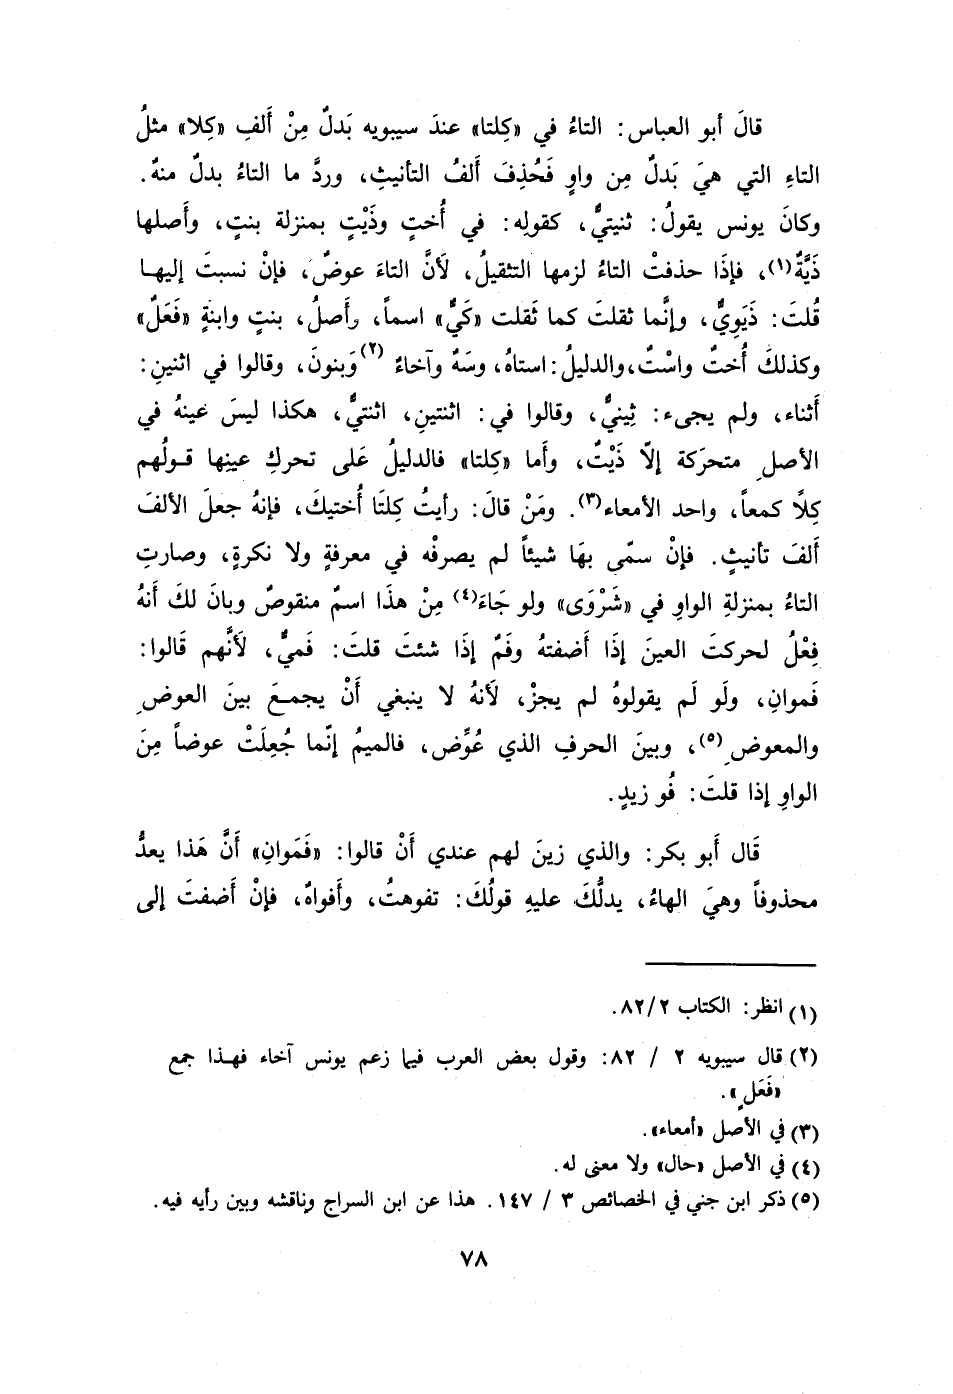 قالَ أبو العباس: التاءُ في «كِلتا» عندَ سيبويه بَدلٌ مِنْ أَلفِ «كِلا» مثلُ
التاءِ التي هيَ بَدلٌ مِن واوٍ فَحُذِفَ أَلفُ التأنيثِ، وردَّ ما التاءُ بدلٌ منهُ.
وكانَ يونس يقولُ: ثنيتيٌّ، كقولِه: في أُختٍ وذَيْتٍ بمنزلة بنتٍ، وأَصلها
ذَيَّةٌ(١)، فإذَا حذفتْ التاءُ لزمها التثقيلُ، لأَنَّ التاءَ عوضٌ، فإنْ نسبتَ إليهـا
قُلتَ: ذَيَوِيٌّ، وإنَّما ثقلتَ كما ثَقلت «كَيٌّ» اسماً، وأَصلُ، بنتٍ وابنةٍ «فَعَلٌ»
وكذلكَ أُختٌ واسْتٌ، والدليلُ: استاهُ، وسَهٌ وآخاءٌ(٢) وَبنونَ، وقالوا في اثنينِ:
أَثناء، ولم يجىء: ثِينيٌّ، وقالوا في: اثنتينِ، اثنتيٌّ، هكذا ليسَ عينهُ في
الأصلِ متحرّكة إلاّ ذَيْتٌ، وأما «كِلتا» فالدليلُ عَلى تحركِ عينِها قـولُهم
كِلاً كمعاً، واحد الأمعاء(٣). ومَنْ قالَ: رأيتُ كِلتَا أُختيكَ، فإنهُ جعلَ الألفَ
أَلفَ تأنيثٍ. فإنْ سمّى بهَا شيئاً لم يصرفْه في معرفةٍ ولا نكرةٍ، وصارتِ
التاءُ بمنزلةِ الواوِ في «شَرْوَى» ولو جَاءَ(٤) مِنْ هذَا اسمٌ منقوصٌ وبانَ لكَ أَنهُ
فِعْلُ لحركتَ العينَ إذَا أَضفتهُ وفَمٌ إذَا شئتَ قلتَ: فَميٌّ، لأَنَّهم قَالوا:
فَموانِ، ولَو لَم يقولوهُ لم يجزْ، لأَنهُ لا ينبغي أَنْ يجمـعَ بينَ العوضِ
والمعوض(٥)، وبينَ الحرفِ الذي عُوِّض، فالميمُ إنّما جُعِلَتْ عوضاً مِنَ
الواوِ إذا قلتَ: فُو زيدٍ.
قَال أَبو بكر: والذي زينَ لهم عندي أَنْ قالوا: «فَمَوانِ» أَنَّ هَذا يعدُّ
محذوفاً وهيَ الهاءُ، يدلُّكَ عليهِ قولُكَ: تفوهتُ، وأَفواهٌ، فإنْ أَضفتَ إلى
(١) انظر: الكتاب ٨٢/٢.
(٢) قال سيبويه ٢ / ٨٢: وقول بعض العرب فيما زعم يونس آخاء فهـذا جمع
«فَعَلٍ».
(٣) في الأصل «أمعاء».
(٤) في الأصل «حال» ولا معنى له.
(٥) ذكر ابن جني في الخصائص ٣ / ١٤٧. هذا عن ابن السراج وناقشه وبين رأيه فيه.
٧٨